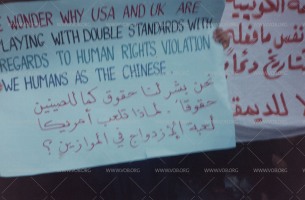 WONDER WHY USA AND UK ARE
PLAYING WITH DOUBLE STANDARDS WITH
REGARDS TO HUMAN RIGHTS VIOLATION
WE HUMANS AS THE CHINESE.
نحن بشر لنا حقوق كما للصينيين
حقوقا. لماذا تلعب أمريكا
لعبة الازدواج في الموازين؟
الكوبية
نفس ما فعله
للديمق
WWW.VOB.ORG
WWW.VOB.ORG
WWW.VOB.ORG